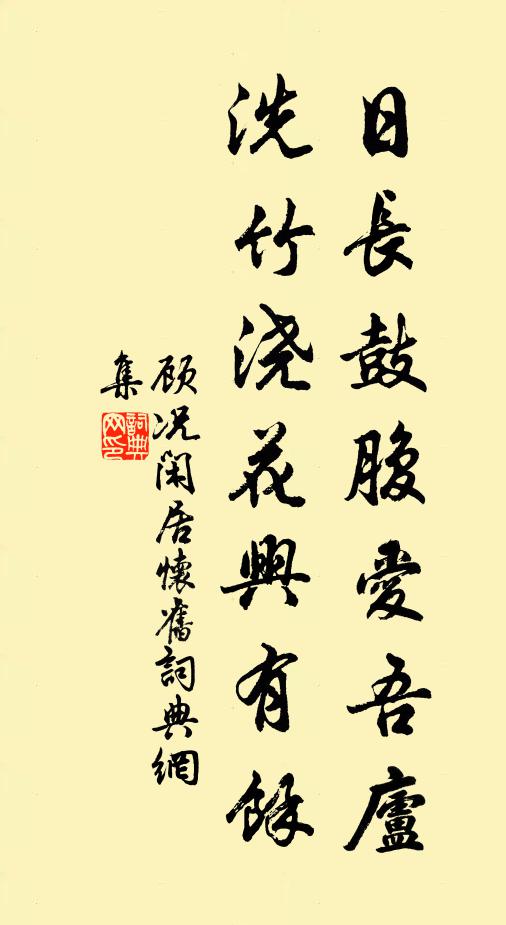 日長鼓腹愛吾廬
洗竹浇花興有餘
顾况閑居懷舊詞典網
集
詞典网印